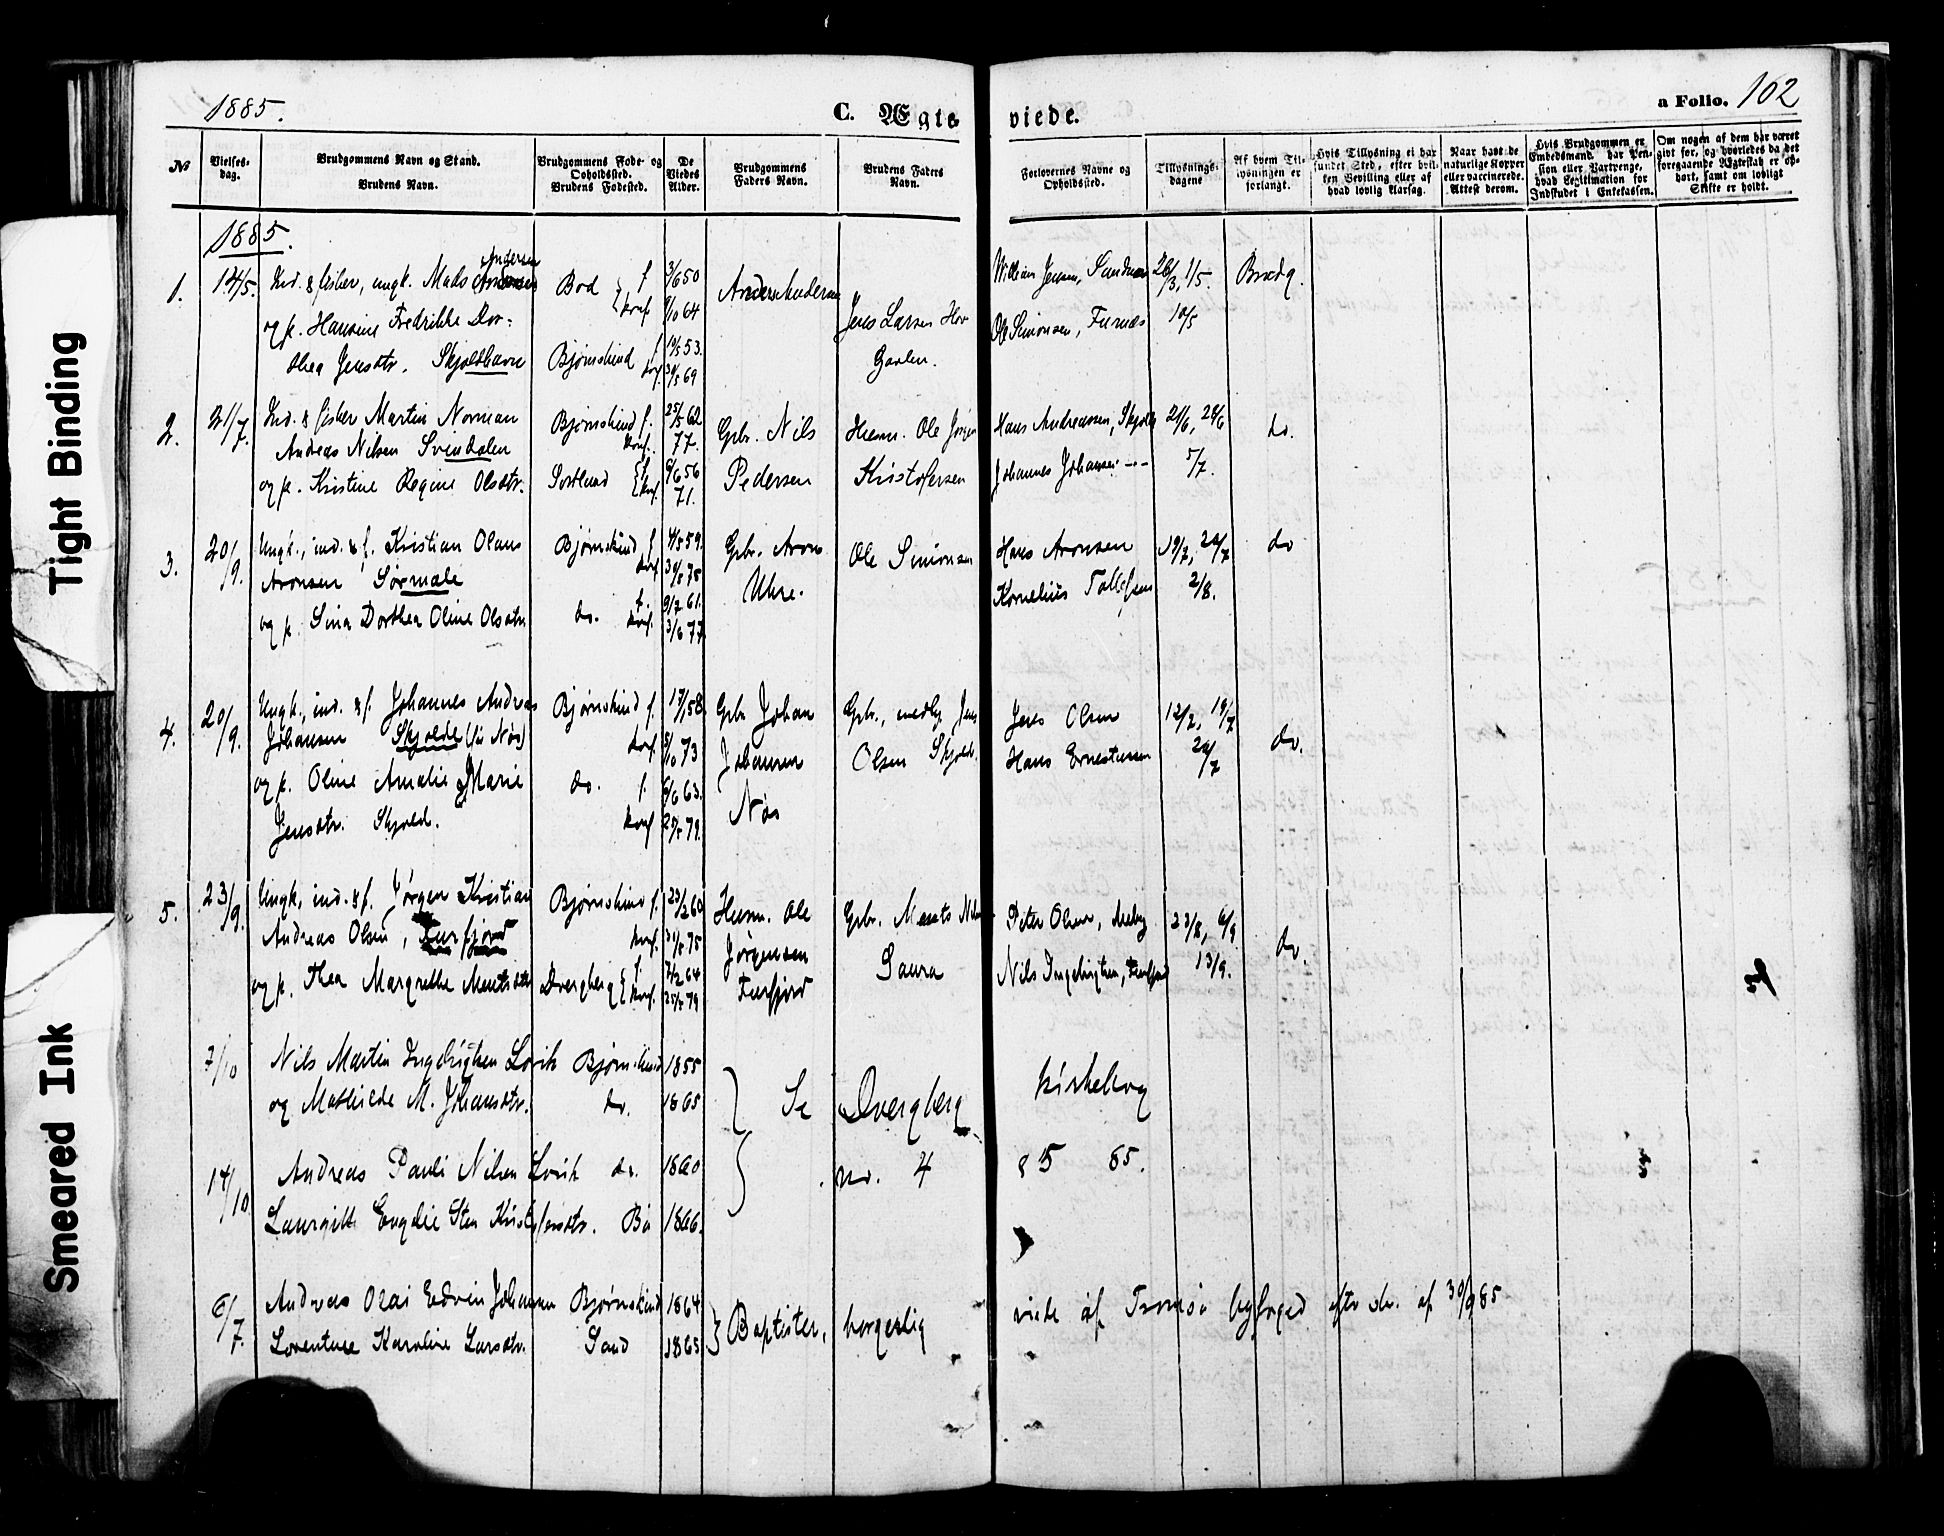 1885.
C. Ægte-
viede.
a Folio. 162
№
Vielses-
dag.
Brudgommens Navn og Stand.
Brudens Navn.
Brudgommens Føde- og
Opholdssted.
Brudens Fødested.
De
Viedes
Alder.
Brudgommens
Faders Navn.
Brudens Faders
Navn.
Forlovernes Navne og
Opholdssted.
Tillysnings-
dagene
Af hvem Til-
lysningen er
forlangt.
Hvis Tillysning ei har
fundet Sted, efter hvil-
ken Bevilling eller af
hvad lovlig Aarsag.
Naar havt de
naturlige Kopper
eller vaccinerede.
Attest derom.
Hvis Brudgommen er
Embedsmand, har Pen-
sion eller Vartpenge,
hvad Legitimation for
Indskudet i Enkekassen.
Om nogen af dem har været
gift før, og hvorledes da det
foregaaende Ægteskab er op-
hørt, samt om lovligt
Skifte er holdt.
1885.
1. 14/5. Ind. & fisker, ungk. Mads Andersen Bod f 3/6 50 Anders Andersen William Jensen, 26/3, 1/5. Brudg.
og p. Hansine Fredrikke Dor- konf 9/10 64 Jens Larsen Ole Simonsen, Furnæs 10/5
thea Jensdtr. Skjoldhavn Bjørnskind f. 53. konf. 69
2. 21/7. Ind. & fisker Martin Norman Bjørnskind f. 25/5 62 Gbr. Nils Husm. Ole Jørgen Hans Andreassen, 21/6, 28/6 do.
Andreas Nilsen Svendalen konf. 77.
og p. Kristine Regine Olsdtr. Sortland f. 9/6 56 konf. 71. Pedersen Kristofersen Johannes Johansen --- 5/7.
3. 20/9. Ungk., ind. & f. Kristian Olaus Bjørnskind f. 4/5 59. Gbr. Arons Ole Simonsen Hans Aronsen 19/7, 26/7 do
Aronsen, Sørmæle konf 75 Uhre. Kornelius Tollefsen 2/8.
og p. Sina Dorthea Oline Olsdtr. do. f. 9/7 61. konf. 3/6 77
4. 20/9. Ungk., ind. & f. Johannes Andreas Bjørnskind f. 58. Gbr. Johan Gbr., Jens Jens Olsen 12/7, 19/7
Johansen Skjolde (før Nøs) konf 73 Johansen Olsen Skjold. Hans Ernestussen 26/7 do.
og p. Oline Amalie Marie do. f. 6/6 63. Nøs
Jensdtr. Skjold. konf 79.
5. 23/9. Ungk., ind. & f. Jørgen Kristian Bjørnskind f. 23/2 60 Husm. Ole Gbr. Ments Nils Peter Olsen, 23/8, 6/9
Andreas Olsen, Furfjord konf. 75 Jørgensen Saura Nils Ingebrigtsen, Furfjord 13/9. do.
og p. Thea Margrethe Mentsdtr Dverberg f. 7/2 64 konf. 79 Furfjord
7/10 Nils Martin Ingebrigtsen Lovik Bjørnskind 1855
og Mathilde M. Johansdtr. do. 1865 Se Dvergberg kirkebog
14/10. Andreas Pauli Nilsen Lovik do. 1860 no. 4 & 5 85.
Lauritte Engelie Sten Kristofersdtr. Bø 1866.
6/7. Andreas Olai Edvin Johansen Bjørnskind 1864 Baptister, borgerlig viede af Tromsø byfoged efter skr. af 30/9 85
Lorentine Karoline Larsdtr. Sand 1865
Tight Binding
Smeared Ink